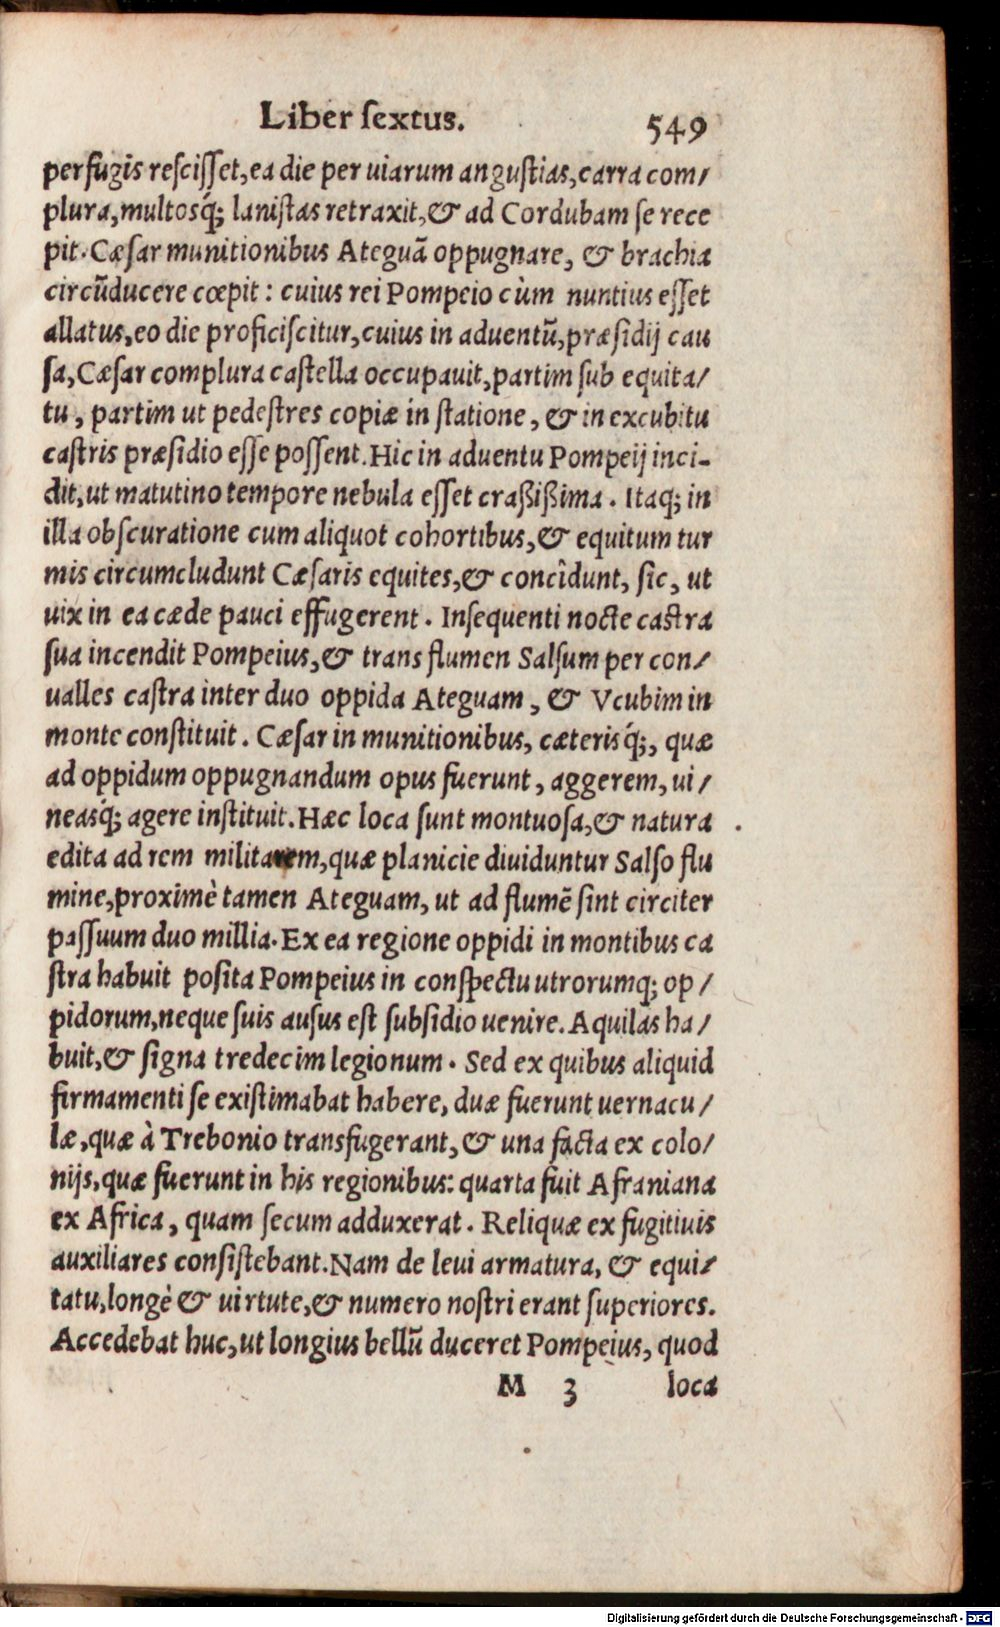 Liber ſextus. 549
perfugis reſciſſet, ea die per uiarum anguſtias, carra com/
plura, multosq́; laniſtas retraxit, & ad Cordubam ſe rece
pit. Cæſar munitionibus Ateguã oppugnare, & brachia
circũducere cœpit: cuius rei Pompeio cùm nuntius eſſet
allatus, eo die proficiſcitur, cuius in aduentũ, præſidij cau
ſa, Cæſar complura caſtella occupauit, partim ſub equita/
tu, partim ut pedeſtres copiæ in ſtatione, & in excubitu
caſtris præſidio eſſe poſſent. Hic in aduentu Pompeij inci-
dit, ut matutino tempore nebula eſſet craßißima. Itaq; in
illa obſcuratione cum aliquot cohortibus, & equitum tur
mis circumcludunt Cæſaris equites, & concîdunt, ſic, ut
uix in ea cæde pauci effugerent. Inſequenti nocte caſtra
ſua incendit Pompeius, & trans flumen Salſum per con/
ualles caſtra inter duo oppida Ateguam, & Vcubim in
monte conſtituit. Cæſar in munitionibus, cæterisq́;, quæ
ad oppidum oppugnandum opus fuerunt, aggerem, ui/
neasq́; agere inſtituit. Hæc loca ſunt montuoſa, & natura
edita ad rem militarem, quæ planicie diuiduntur Salſo flu
mine, proximè tamen Ateguam, ut ad flumẽ ſint circiter
paſſuum duo millia. Ex ea regione oppidi in montibus ca
ſtra habuit poſita Pompeius in conſpectu utrorumq; op/
pidorum, neque ſuis auſus eſt ſubſidio uenire. Aquilas ha/
buit, & ſigna tredecim legionum. Sed ex quibus aliquid
firmamenti ſe exiſtimabat habere, duæ fuerunt uernacu/
læ, quæ à Trebonio transfugerant, & una facta ex colo/
nijs, quæ fuerunt in his regionibus: quarta fuit Afraniana
ex Africa, quam ſecum adduxerat. Reliquæ ex fugitiuis
auxiliares conſiſtebant. Nam de leui armatura, & equi/
tatu, longè & uirtute, & numero noſtri erant ſuperiores.
Accedebat huc, ut longius bellũ duceret Pompeius, quod
M 3 loca
Digitalisierung gefördert durch die Deutsche Forschungsgemeinschaft - DFG